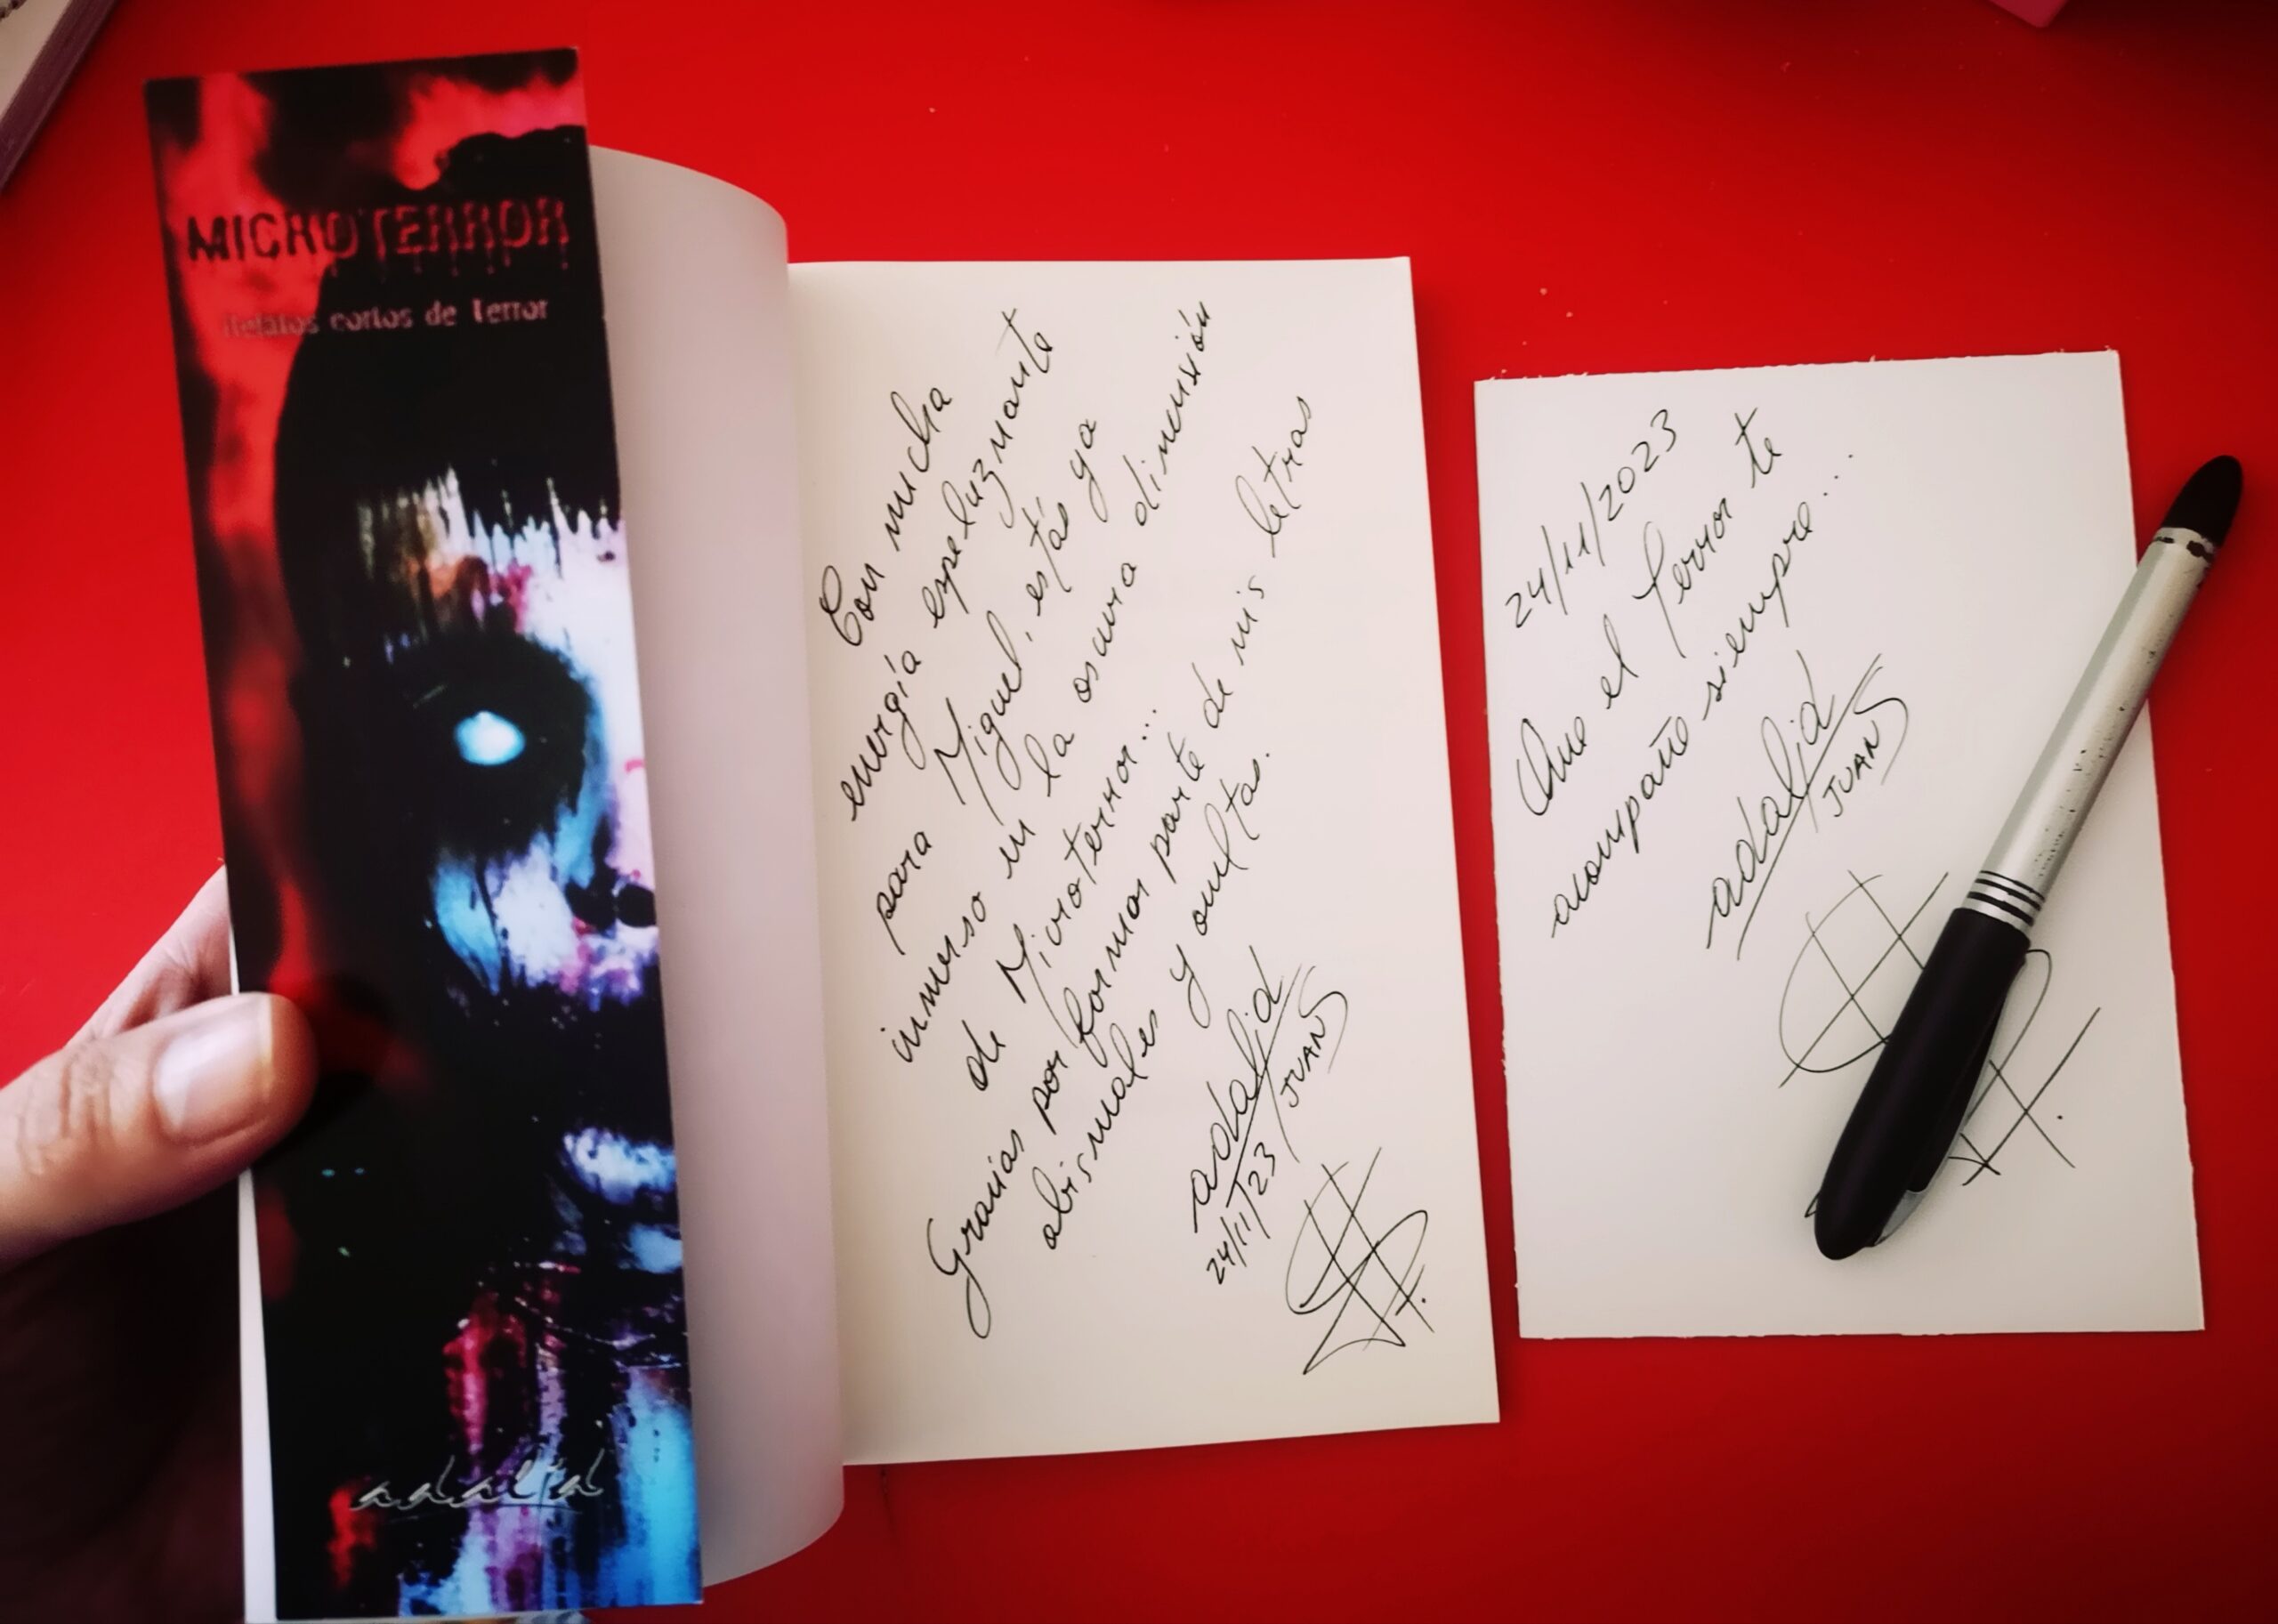 MICROTERROR
Relatos cortos de Terror
adalid
Con mucha
energía espeluznante
para Miguel, estás ya
inmerso en la oscura dimensión
de Microterror...
Gracias por formar parte de mis letras
abismales y ocultas.
adalid
JUAN
24/11/23
24/11/2023
Que el Terror te
acompañe siempre...
adalid
JUAN